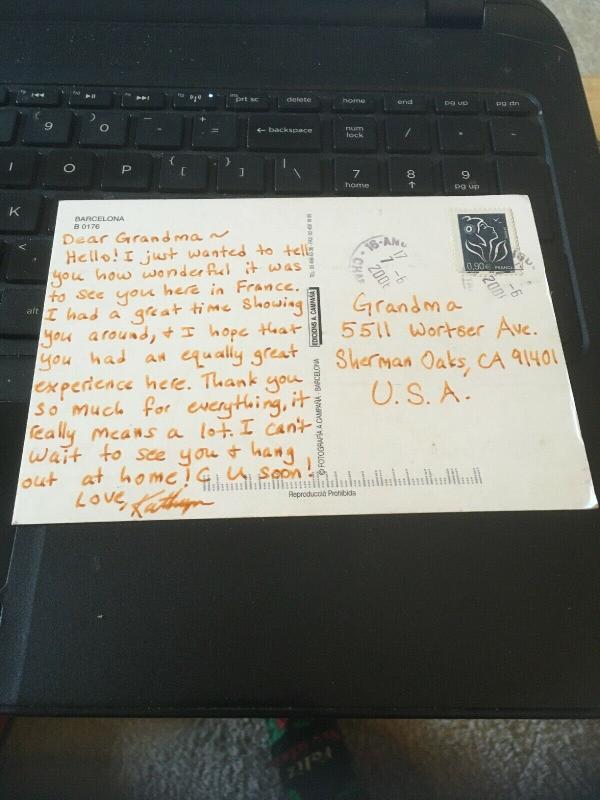 prt sc
delete
home
end
pg up
pg dn
9
(
0
)
-
+
=
← backspace
num lock
/
*
-
I
O
P
{
[
}
]
|
\
7
home
8
9
pg up
K
<
alt
BARCELONA
B 0176
Dear Grandma ~
Hello! I just wanted to tell
you how wonderful it was
to see you here in France.
I had a great time showing
you around, & I hope that
you had an equally great
experience here. Thank you
so much for everything, it
really means a lot. I can't
wait to see you & hang
out at home! C U Soon!
Love, Kathryn
EDICIONS A. CAMPAÑÁ
© FOTOGRAFIA A CAMPAÑÁ - BARCELONA
Reproducció Prohibida
16-ANG
17
7-6
0,90€
FRANCE
Grandma
5511 Wortser Ave.
Sherman Oaks, CA 91401
U.S.A.